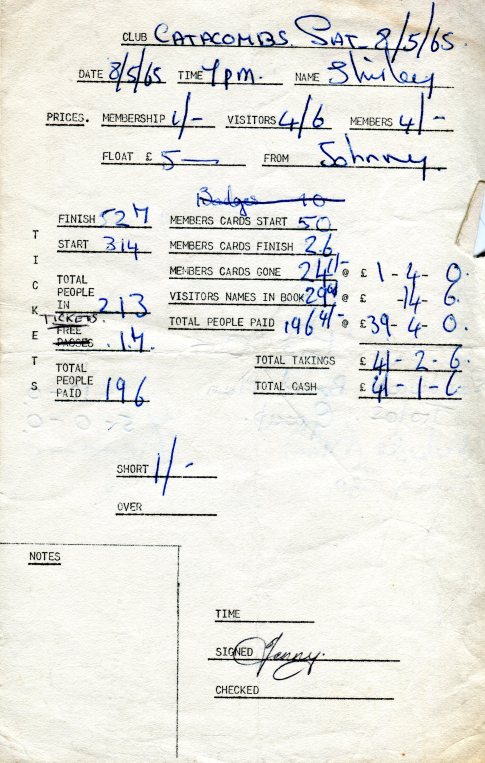 CLUB CATACOMBS. SAT 8/5/65.
DATE 8/5/65 TIME 7pm. NAME Shirley
PRICES. MEMBERSHIP 1/- VISITORS 4/6 MEMBERS 4/-
FLOAT £ 5 — FROM Johnny
Badges 10
FINISH 527 MEMBERS CARDS START 50
START 314 MEMBERS CARDS FINISH 26
MEMBERS CARDS GONE 24 1/- @ £ 1-4-0.
TOTAL PEOPLE IN 213 VISITORS NAMES IN BOOK 29 @ £ -14-6.
TICKETS
FREE PASSES 17. TOTAL PEOPLE PAID 196 4/- @ £39-4-0.
TOTAL PEOPLE PAID 196 TOTAL TAKINGS £ 41-2-6.
TOTAL CASH £ 41-1-6
TICKETS
SHORT 1/-
OVER
NOTES
TIME
SIGNED
CHECKED